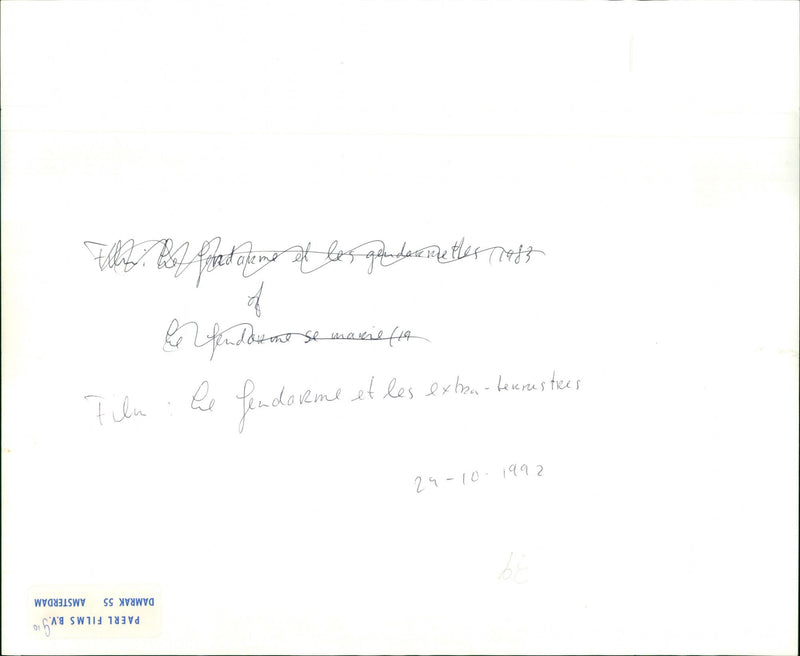 Film: Le gendarme et les gendarmettes (1983
of
Le gendarme se marie (19
Film : Le gendarme et les extra-terrestres
24-10-1992
PAERL FILMS B.V.
DAMRAK 55 AMSTERDAM